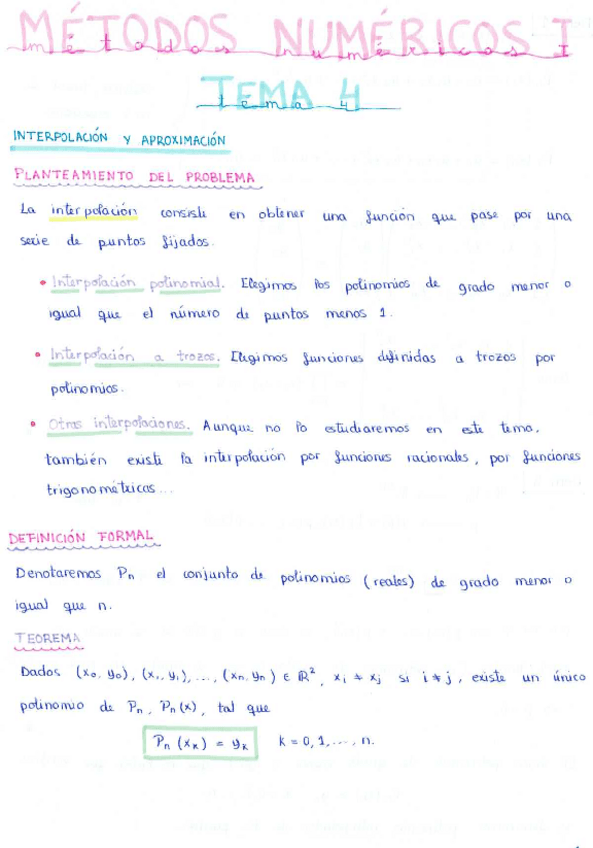 MÉTODOS NUMÉRICOS I
métodos numéricos I
TEMA 4
tema 4
INTERPOLACIÓN Y APROXIMACIÓN
PLANTEAMIENTO DEL PROBLEMA
La interpolación consiste en obtener una función que pase por una
serie de puntos fijados.
• Interpolación polinomial. Elegimos los polinomios de grado menor o
igual que el número de puntos menos 1.
• Interpolación a trozos. Elegimos funciones definidas a trozos por
polinomios.
• Otras interpolaciones. Aunque no lo estudiaremos en este tema,
también existe la interpolación por funciones racionales, por funciones
trigonométricas...
DEFINICIÓN FORMAL
Denotaremos Pₙ el conjunto de polinomios (reales) de grado menor o
igual que n.
TEOREMA
Dados (x₀, y₀), (x₁, y₁), ..., (xₙ, yₙ) ∈ ℝ², xᵢ ≠ xⱼ si i ≠ j, existe un único
polinomio de Pₙ, Pₙ(x), tal que
Pₙ(xₖ) = yₖ k = 0, 1, ..., n.